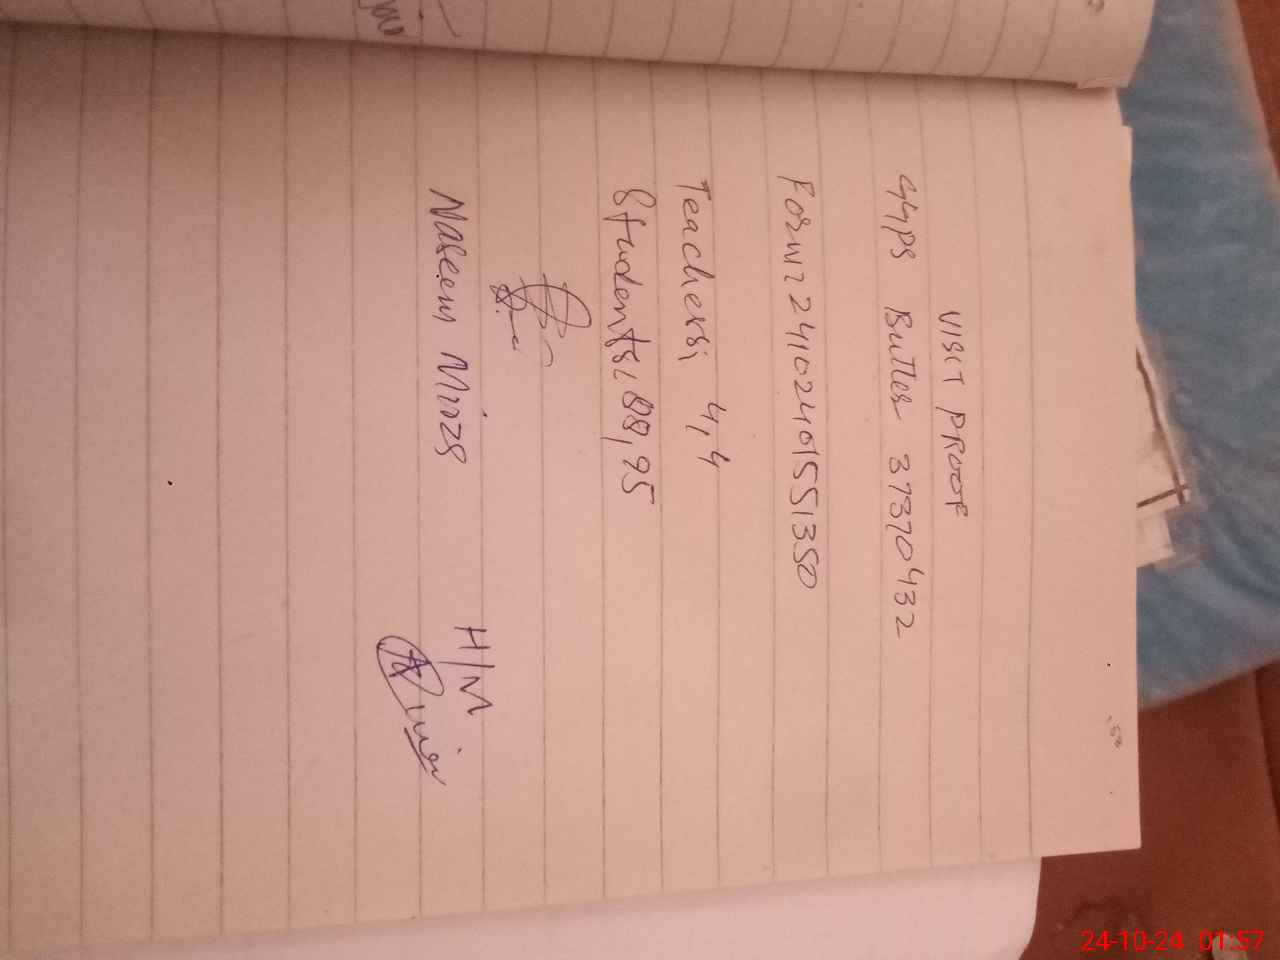 VISIT PROOF
GGPS Butler 37370432
Form: 241024015551350
Teachers: 4,4
Students: 88,95
Naseem Mirza
H/M
24-10-24 01:57